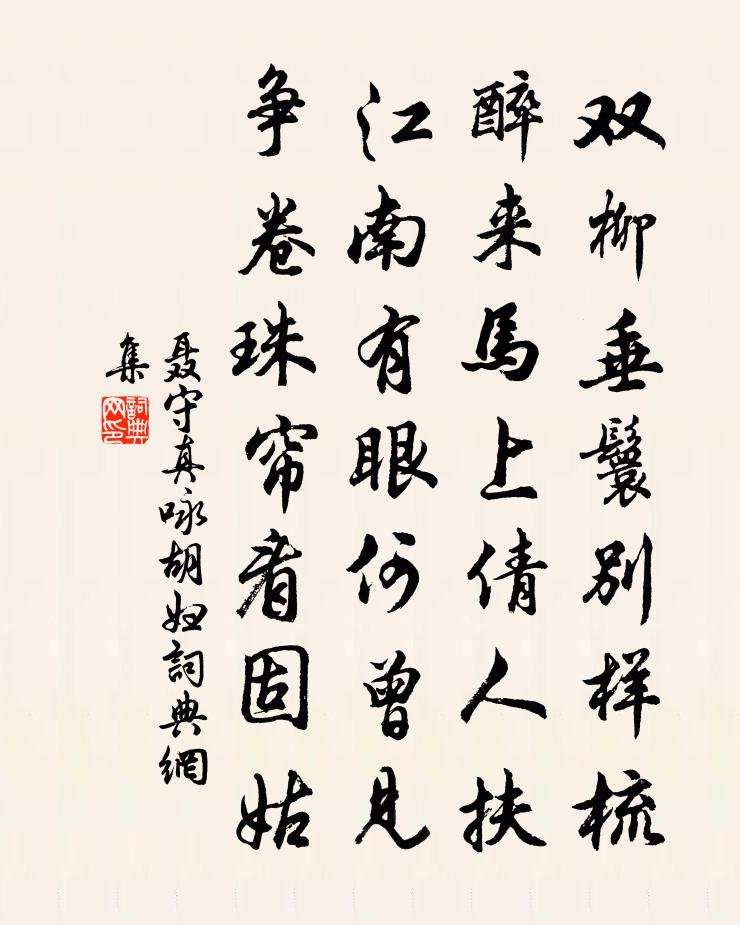 双柳垂鬟别样梳
醉来馬上倩人扶
江南有眼何曾見
争卷珠帘看固姑
聂守真咏胡妇詞典網
集
詞典网印